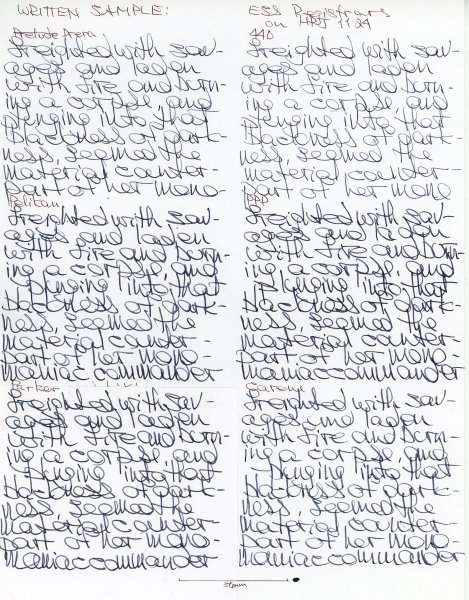 WRITTEN SAMPLE:
ESS Registrars
on HPJ 1124
440
freighted with sav-
ages and laden
with fire and burn-
ing a corpse, and
plunging into that
blackness of dark-
ness, seemed the
material counter-
part of her mono-
freighted with sav-
ages and laden
with fire and burn-
ing a corpse, and
plunging into that
blackness of dark-
ness, seemed the
material counter-
part of her mono
Pelikan
freighted with sav-
ages and laden
with fire and burn-
ing a corpse, and
plunging into that
blackness of dark-
ness, seemed the
material counter-
part of her mono-
maniac commander
freighted with sav-
ages and laden
with fire and burn-
ing a corpse, and
plunging into that
blackness of dark-
ness, seemed the
material counter-
part of her mono-
maniac commander
Parker
freighted with sav-
ages and laden
with fire and burn-
ing a corpse, and
plunging into that
blackness of dark-
ness, seemed the
material counter-
part of her mono-
maniac commander
Carene
freighted with sav-
ages and laden
with fire and burn-
ing a corpse, and
plunging into that
blackness of dark-
ness, seemed the
material counter-
part of her mono-
maniac commander
50mm